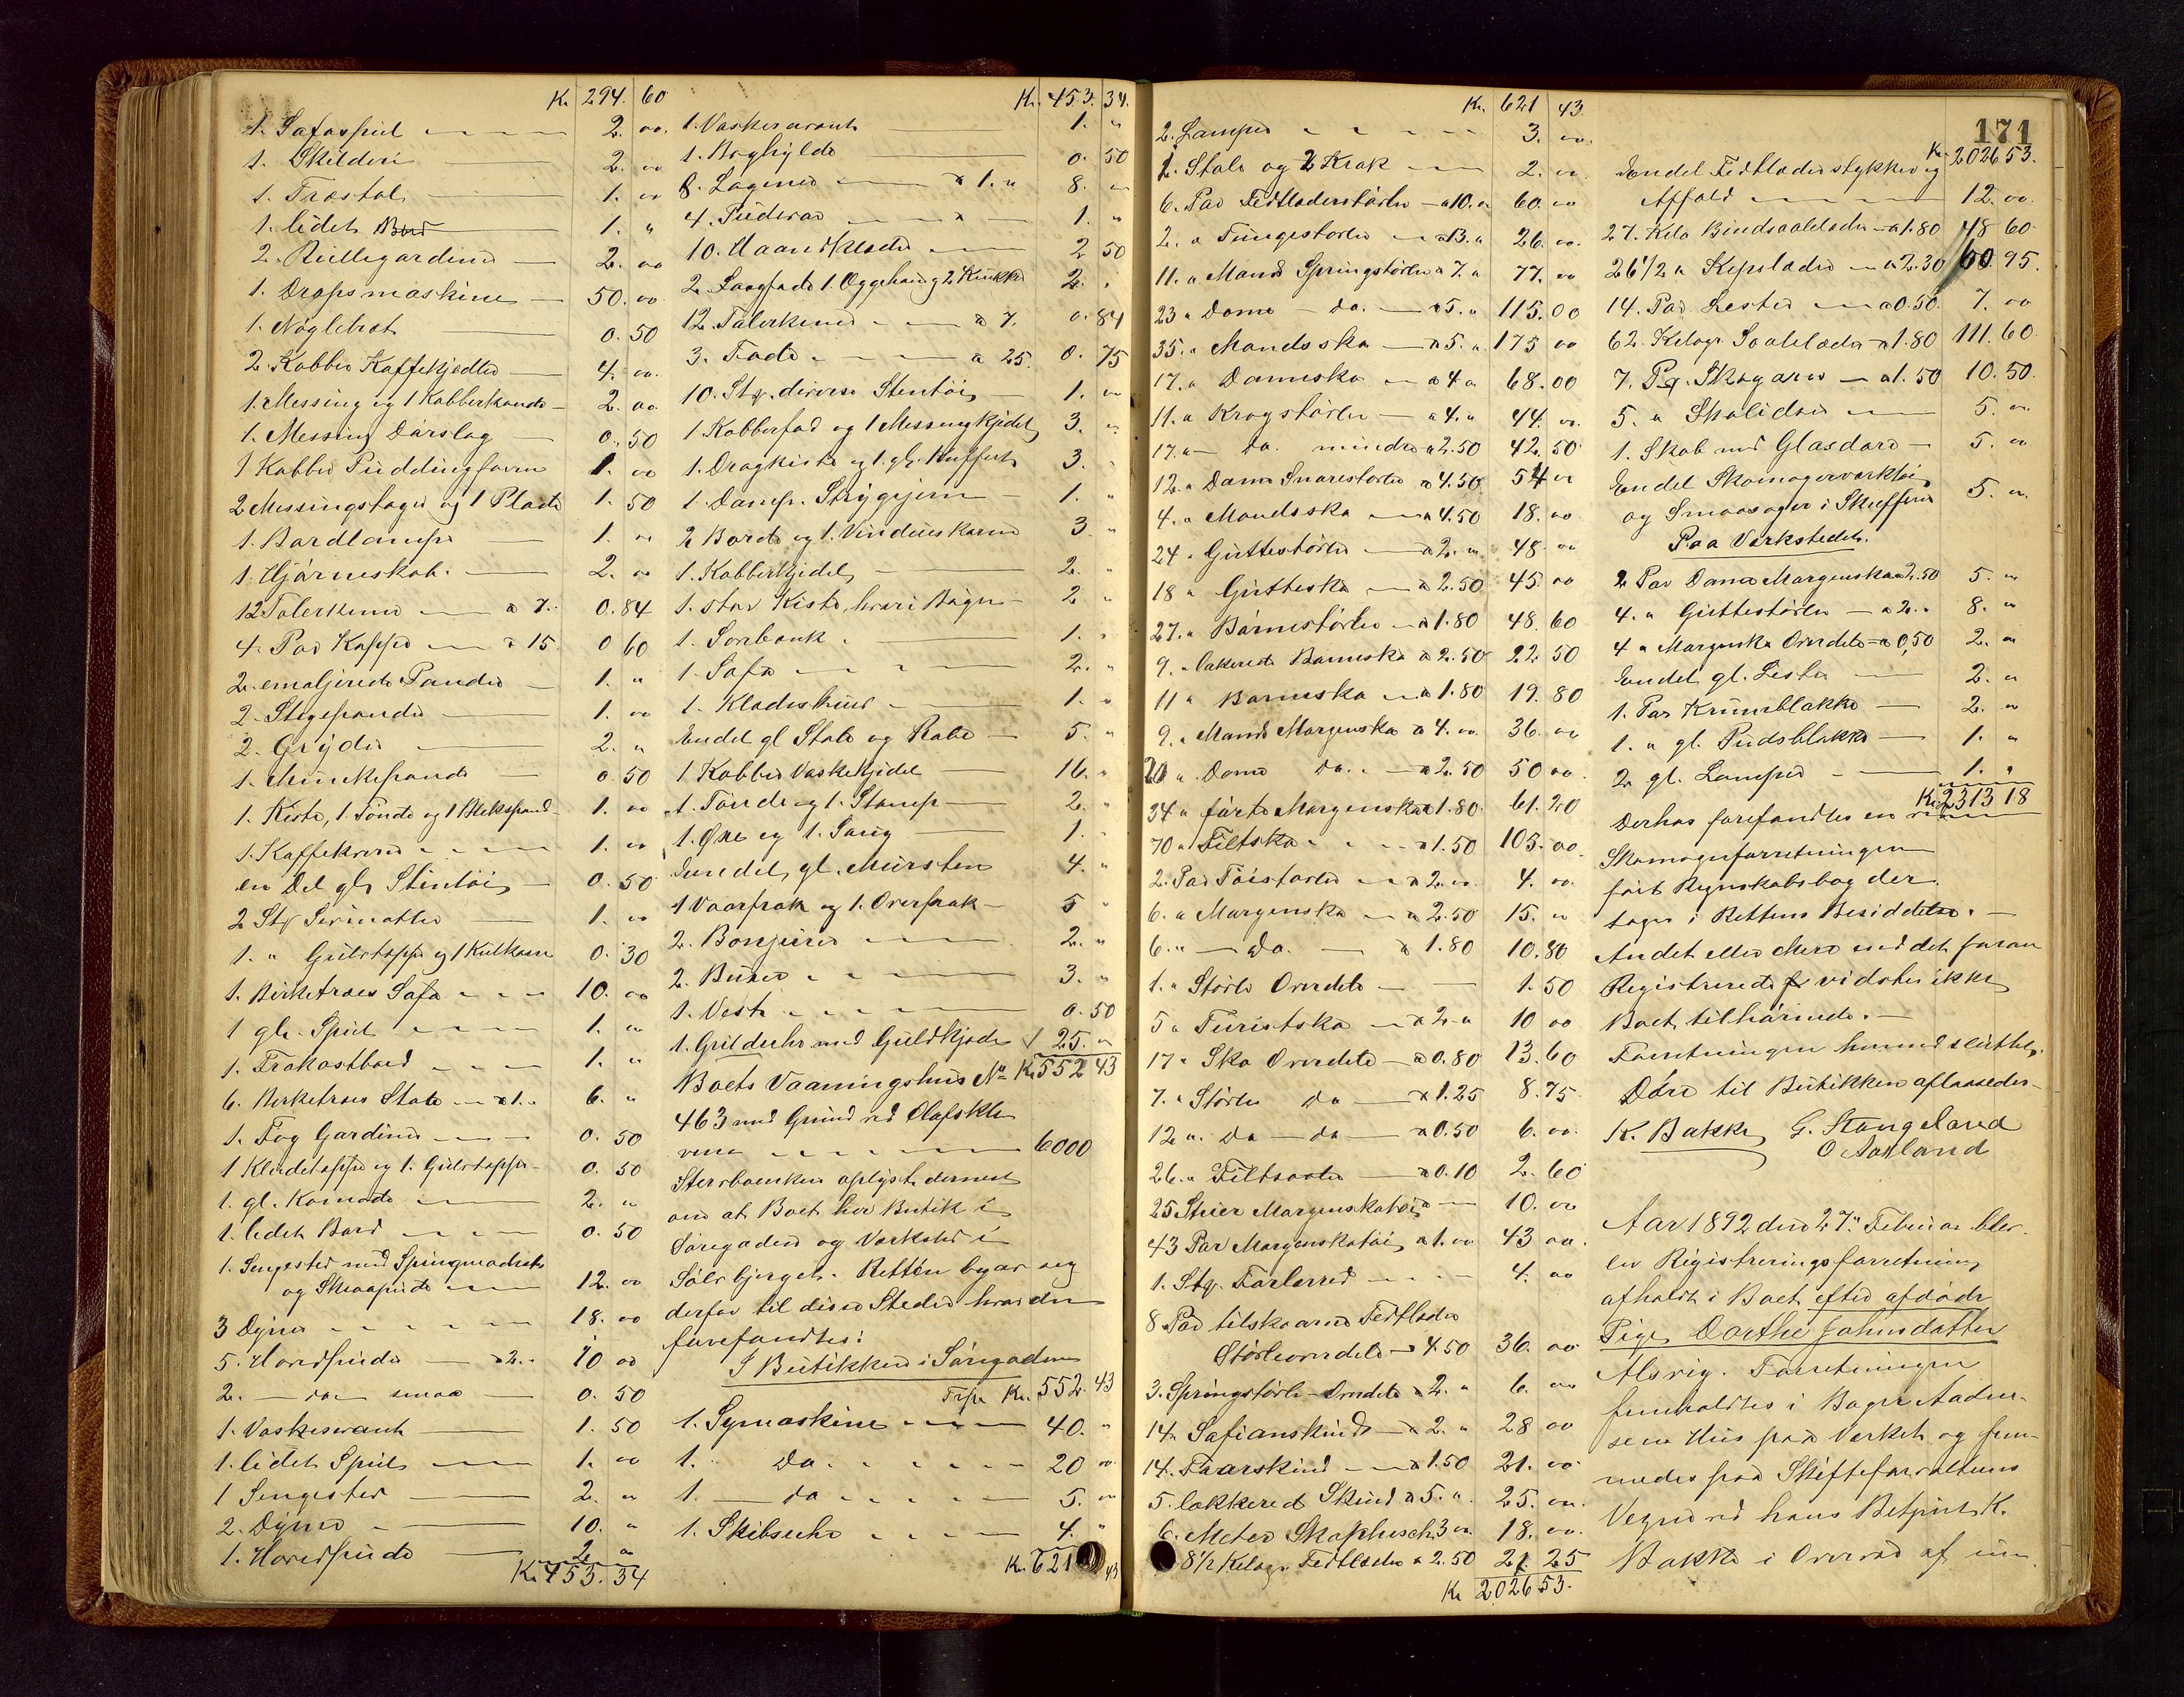 Kr. 294. 60
1. Sofaspeil 2. 00.
1. Skilderi 2. 00
1. Træstol 1. 00
1. lidet Bord 1. "
2. Rullegardiner 2. 00
1. Dropsmaskine 50. 00
1. Nøglebret 0. 50
2. Kobber Kaffekjedler 4. 00.
1. Messing og 1 Kobberkande 2. 00
1. Messing Dørslag 0. 50
1 Kobber Puddingform 1. 00
2 Messingstager og 1 Plade 1. 50
1. Bordlampe 1. 00
1. Hjørneskab. 2. 00
12 Talerkener a 7. 0. 84
4. Par Kopper a 15 0 60
2. emaljerede Pander 1. "
2. Stegepander 1. 00
2. Gryder 2. "
1. Munkepande 0. 50
1. Kiste, 1 Tønde og 1 Blekspand 1. 00
1. Kaffekvern 1. 00
en Del gl. Stentøi 0. 50
2 Stk 1. 00
1. " Gulvtæppe og 1 Kulkasse 0. 30
1. Birketræes Sofa 10. 00
1 gl. Speil 1. "
1. Frokostbord 1. "
6. Birketræes Stole a 1. " 6. "
1. Fag Gardiner 0. 50
1 Klædetæppe og 1. Gulvtæppe 0. 50
1. gl. Komode 2. "
1. lidet Bord 0. 50
1. Sengested med Springmadrats
og Skraapude 12. 00
3 Dyner 18. 00
5. Hovedpuder a 2. " 10 00
2. do smaa 0. 50
1. Vaskeservant 1. 50
1. lidet Speil 1. 00
1 Sengested 2. "
2. Dyner 10. "
1. Hovedpude 2. "
Kr. 453. 34
Kr. 453. 34.
1. Vaskeservant 1. "
1. Boghylde 0. 50
8. Lagener a 1. " 8. "
4. Pudevar a 1. "
10. Haandklæder 2 50
2. 2.
12. Talerkener a 7. 0. 84
3. Fade a 25. 0. 75
10. Stk. diverse Stentøi 1. "
1 Kobberfad og 1 Messingkjedel 3. "
1. Dragkiste og 1. gl. Kuffert 3. "
1. Damp. Strygejern 1. "
2 Borde og 1. Vindueskarm 3 "
1. Kobberkjedel 2. "
1. stor Kiste, hvori Bøger 2 "
1. Sovebænk 1. "
1. Sofa 2. "
1. Klædeskrue 1. "
Endel gl Stole og Rabe 5. "
1 Kobber Vaskekjedel 16. "
1. Tønde og 1. Stamp 2. "
1. Øxe og 1. Saug 1. "
Endel gl. Mursten 4. "
1 Vaarfrak og 1. Overfrak 5 "
2. Bonjurer 2. "
2. Buxer 3. "
1. Vest 0. 50
1. Guldeuhr med Guldkjede 25. "
Kr. 552 43
Boets Vaaningshus No
463 med Grund ved Olafskle-
ven 6000
Stervboenken oplyste dernest
om at Boet har Butik i
Søregaden og Værksted i
Sølvbjerget. Retten begav sig
derfor til disse Steder hvor der
forefandtes:
I Butikken i Sørigaden
Trsp. Kr. 552. 43
1. Symaskine 40. "
1. Do. 20 00
1. do 5. 00
1. Skibsuhr 4. "
Kr. 621 43
Kr. 621 43.
2. Lamper 3. 00.
1. Stole og 2 Krak 2. 00
6. Par Fedtlæderstøvler a 10. 00 60. 00
2. " Tungestøvler a 13. " 26. 00.
11. " Mands Springstøvler a 7. " 77. 00
23 " Dame do. a 5. " 115. 00
35. " Mandssko a 5. " 175 00
17. " Damesko a 4 " 68. 00
11. " Kragstøvler a 4. " 44. 00.
17. " do. mindre a 2.50 42. 50
12. " Dame Snørestøvler a 4.50. 54 00
4. " Mandssko a 4.50 18. 00
24 " Guttestøvler a 2. " 48. 00
18 " Guttesko a 2.50 45. 00
27. " Børnestøvler a 1.80 48. 60
9. " lakerede Børnesko a 2.50 22 50
11 " Børnesko a 1.80 19. 80
9. " Mands Morgensko a 4. 00 36. 00
20 " Dame do. a 2.50 50 00.
34 " forte Morgensko a 1.80. 61. 20
70 " Filtsko a 1.50 105. 00.
2. Par Tøistøvler a 2. 00. 4. 00.
6. " Morgensko a 2.50 15. 00
6. " Do. a 1.80 10. 80
1. " Støvle Overdele 1. 50
5 " Turistsko a 2. " 10 00
17 " Sko Overdele a 0.80 13. 60
7. " Støvle do a 1.25 8. 75
12 " do do a 0.50 6. 00.
26. " Filtsaaler a 0.10 2. 60
25 10. 00
43 Par Morgenskotøi a 1. 00 43 00.
1. Stk. Forlærred 4. 00
8 Par tilskaarne Fedtlæder
Støvleoverdele a 4.50 36. 00
3. Springstøvle Overdele a 2. " 6. 00
14 Safianskind a 2. " 28 00
14. Faarskind a 1.50 21. 00
5. lakkered Skind a 5. " 25. 00.
6. Meter a 3 00 18. 00.
8 1/2 Kilogr Fedtlæder a 2.50 21. 25
Kr. 2026 53.
171
Kr. 2026 53.
Endel Fedtlæderstykker og
Affald 12. 00.
27. Kilo Bindsaalelæder a 1.80 48 60.
26 1/2 " Kipslæder a 2.30 60. 95.
14. Par Lester a 0.50 7. 00
62. Kilogr Saalelæder a 1.80 111. 60.
7. Pg. Skogarn a 1.50 10. 50.
5. " 5. 00.
1. Skab med Glasdøre 5. 00
Endel Skomagerverktøi
og Smaasager i Skufferne 5. 00.
Paa Værkstedet.
2 Par Dame Morgensko a 2.50 5. 00
4. " Guttestøvler a 2. " 8. 00
4 " Morgensko Overdele a 0,50 2. 00
Endel gl. Lester 2. 00
1. Par Krumblokke 2. 00
1. " gl. Pudsblokke 1. "
2 gl. Lamper 1. "
Kr. 2313 18
Derhos forefandtes en
Skomagerforretningen
ført Regnskabsbog der
toges i Rettens Besiddelse.
Andet eller Mere end det foran
Registrerede vidstes ikke
Boet tilhørende.
Forretningen hermed sluttet.
Døre til Butikken aflaasedes.
K. Bakke G. Stangeland
O Aarland
Aar 1892 den 27. Februar blev
en Registreringsforretning
afholdt i Boet efter afdøde
Pige Dorthe Johnsdatter
Alsvig. Forretningen
fremholdtes i Bager Aadne-
sens Hus paa Verket og frem-
medes paa Skifteforvalterens
Vegne ved hans Betjent K.
Bakke i Overvær af un-